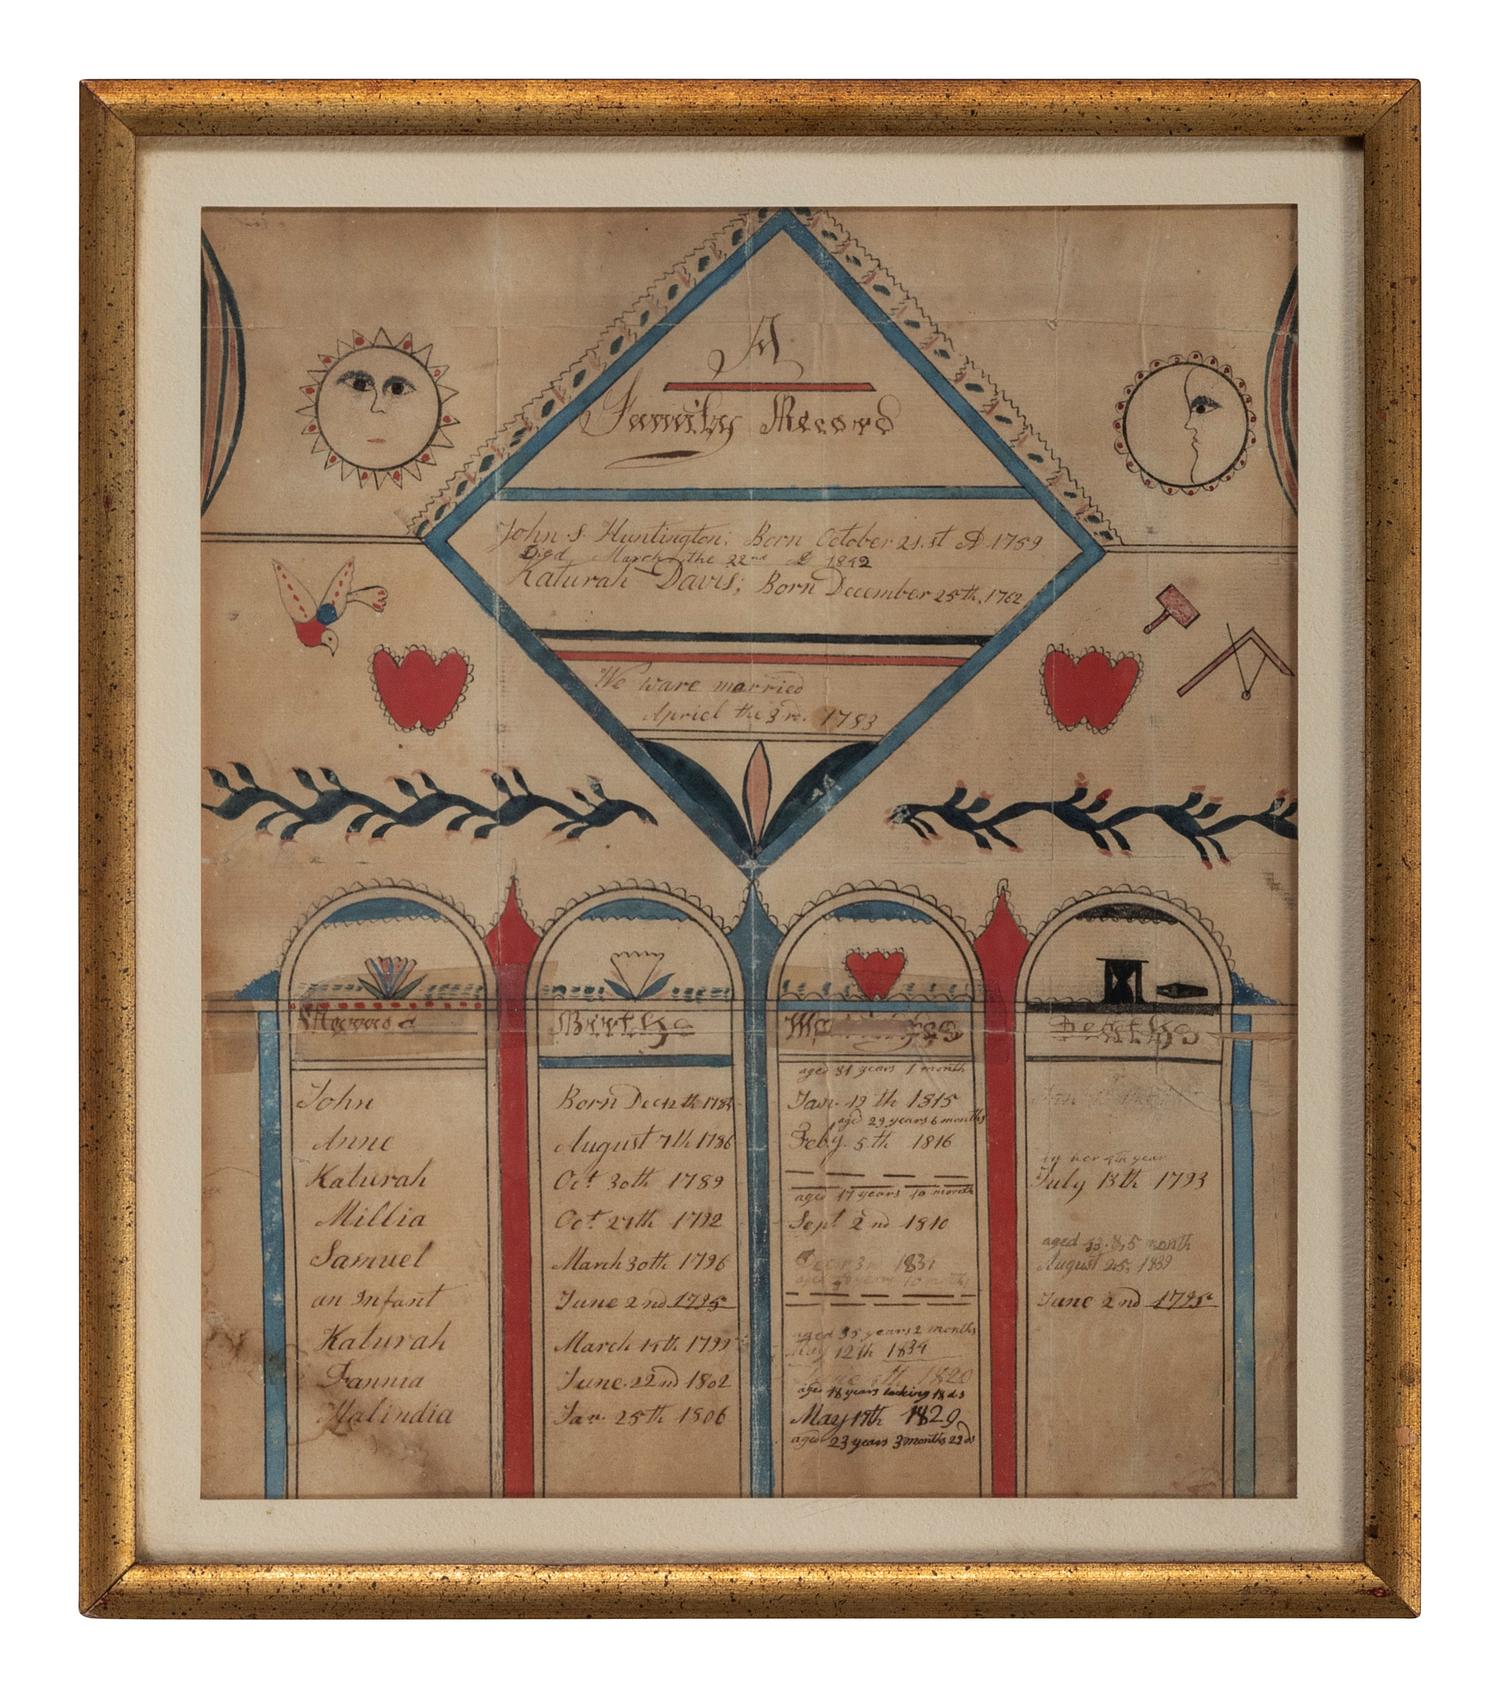 A
Family Record
John S. Huntington; Born October 21.st A 1759
Died March the 22nd A 1842
Katurah Davis; Born December 25th, 1762
We ware married
Apriel the 3rd. 1783
Names
Births
Deaths
aged 31 years 1 month
John
Born Dec 12th
Jan. 19th 1815
aged 29 years 6 months
Anne
August 7th 1786
Feby. 5th 1816
in her 4th year
Katurah
Oct 30th 1789
July 13th 1793
aged 17 years 10 month
Millia
Oct 27th 1792
Sept 2nd 1810
aged 5 month
Samuel
March 30th 1796
August 25, 1839
an Infant
June 2nd 1795
June 2nd 1795
aged 35 years 2 months
Katurah
March 14th 1799
12th 1834
Fannia
June 22nd 1802
1820
aged 18 years lacking 18 ds
Malindia
Jan. 25th 1806
May 19th 1829
aged 23 years 3 months 23 d